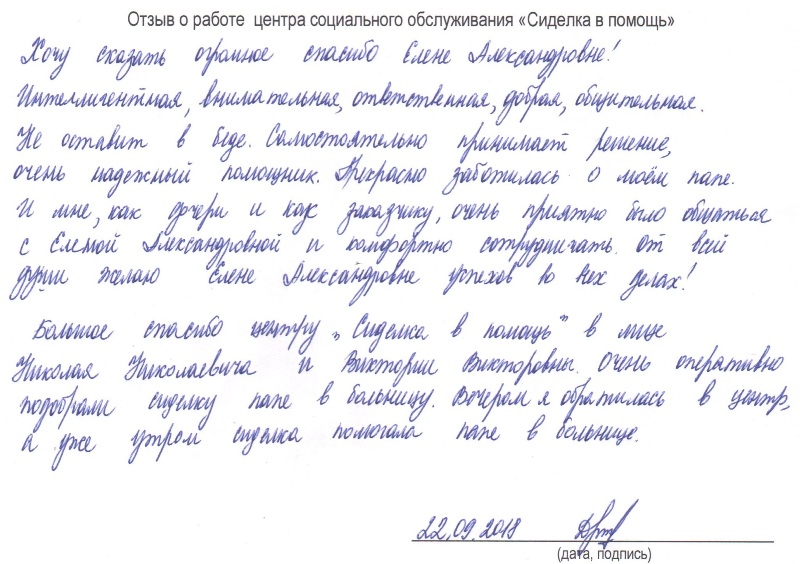 Отзыв о работе центра социального обслуживания «Сиделка в помощь»
Хочу сказать огромное спасибо Елене Александровне!
Интеллигентная, внимательная, ответственная, добрая, общительная.
Не оставит в беде. Самостоятельно принимает решение,
очень надежный помощник. Прекрасно заботилась о моём папе.
И мне, как дочери и как заказчику, очень приятно было общаться
с Еленой Александровной и комфортно сотрудничать. От всей
души желаю Елене Александровне успехов во всех делах!
Большое спасибо центру „Сиделка в помощь" в лице
Николая Николаевича и Виктории Викторовны. Очень оперативно
подобрали сиделку папе в больницу. Вечером я обратилась в центр,
а уже утром сиделка помогала папе в больнице.
22.09.2018
(дата, подпись)